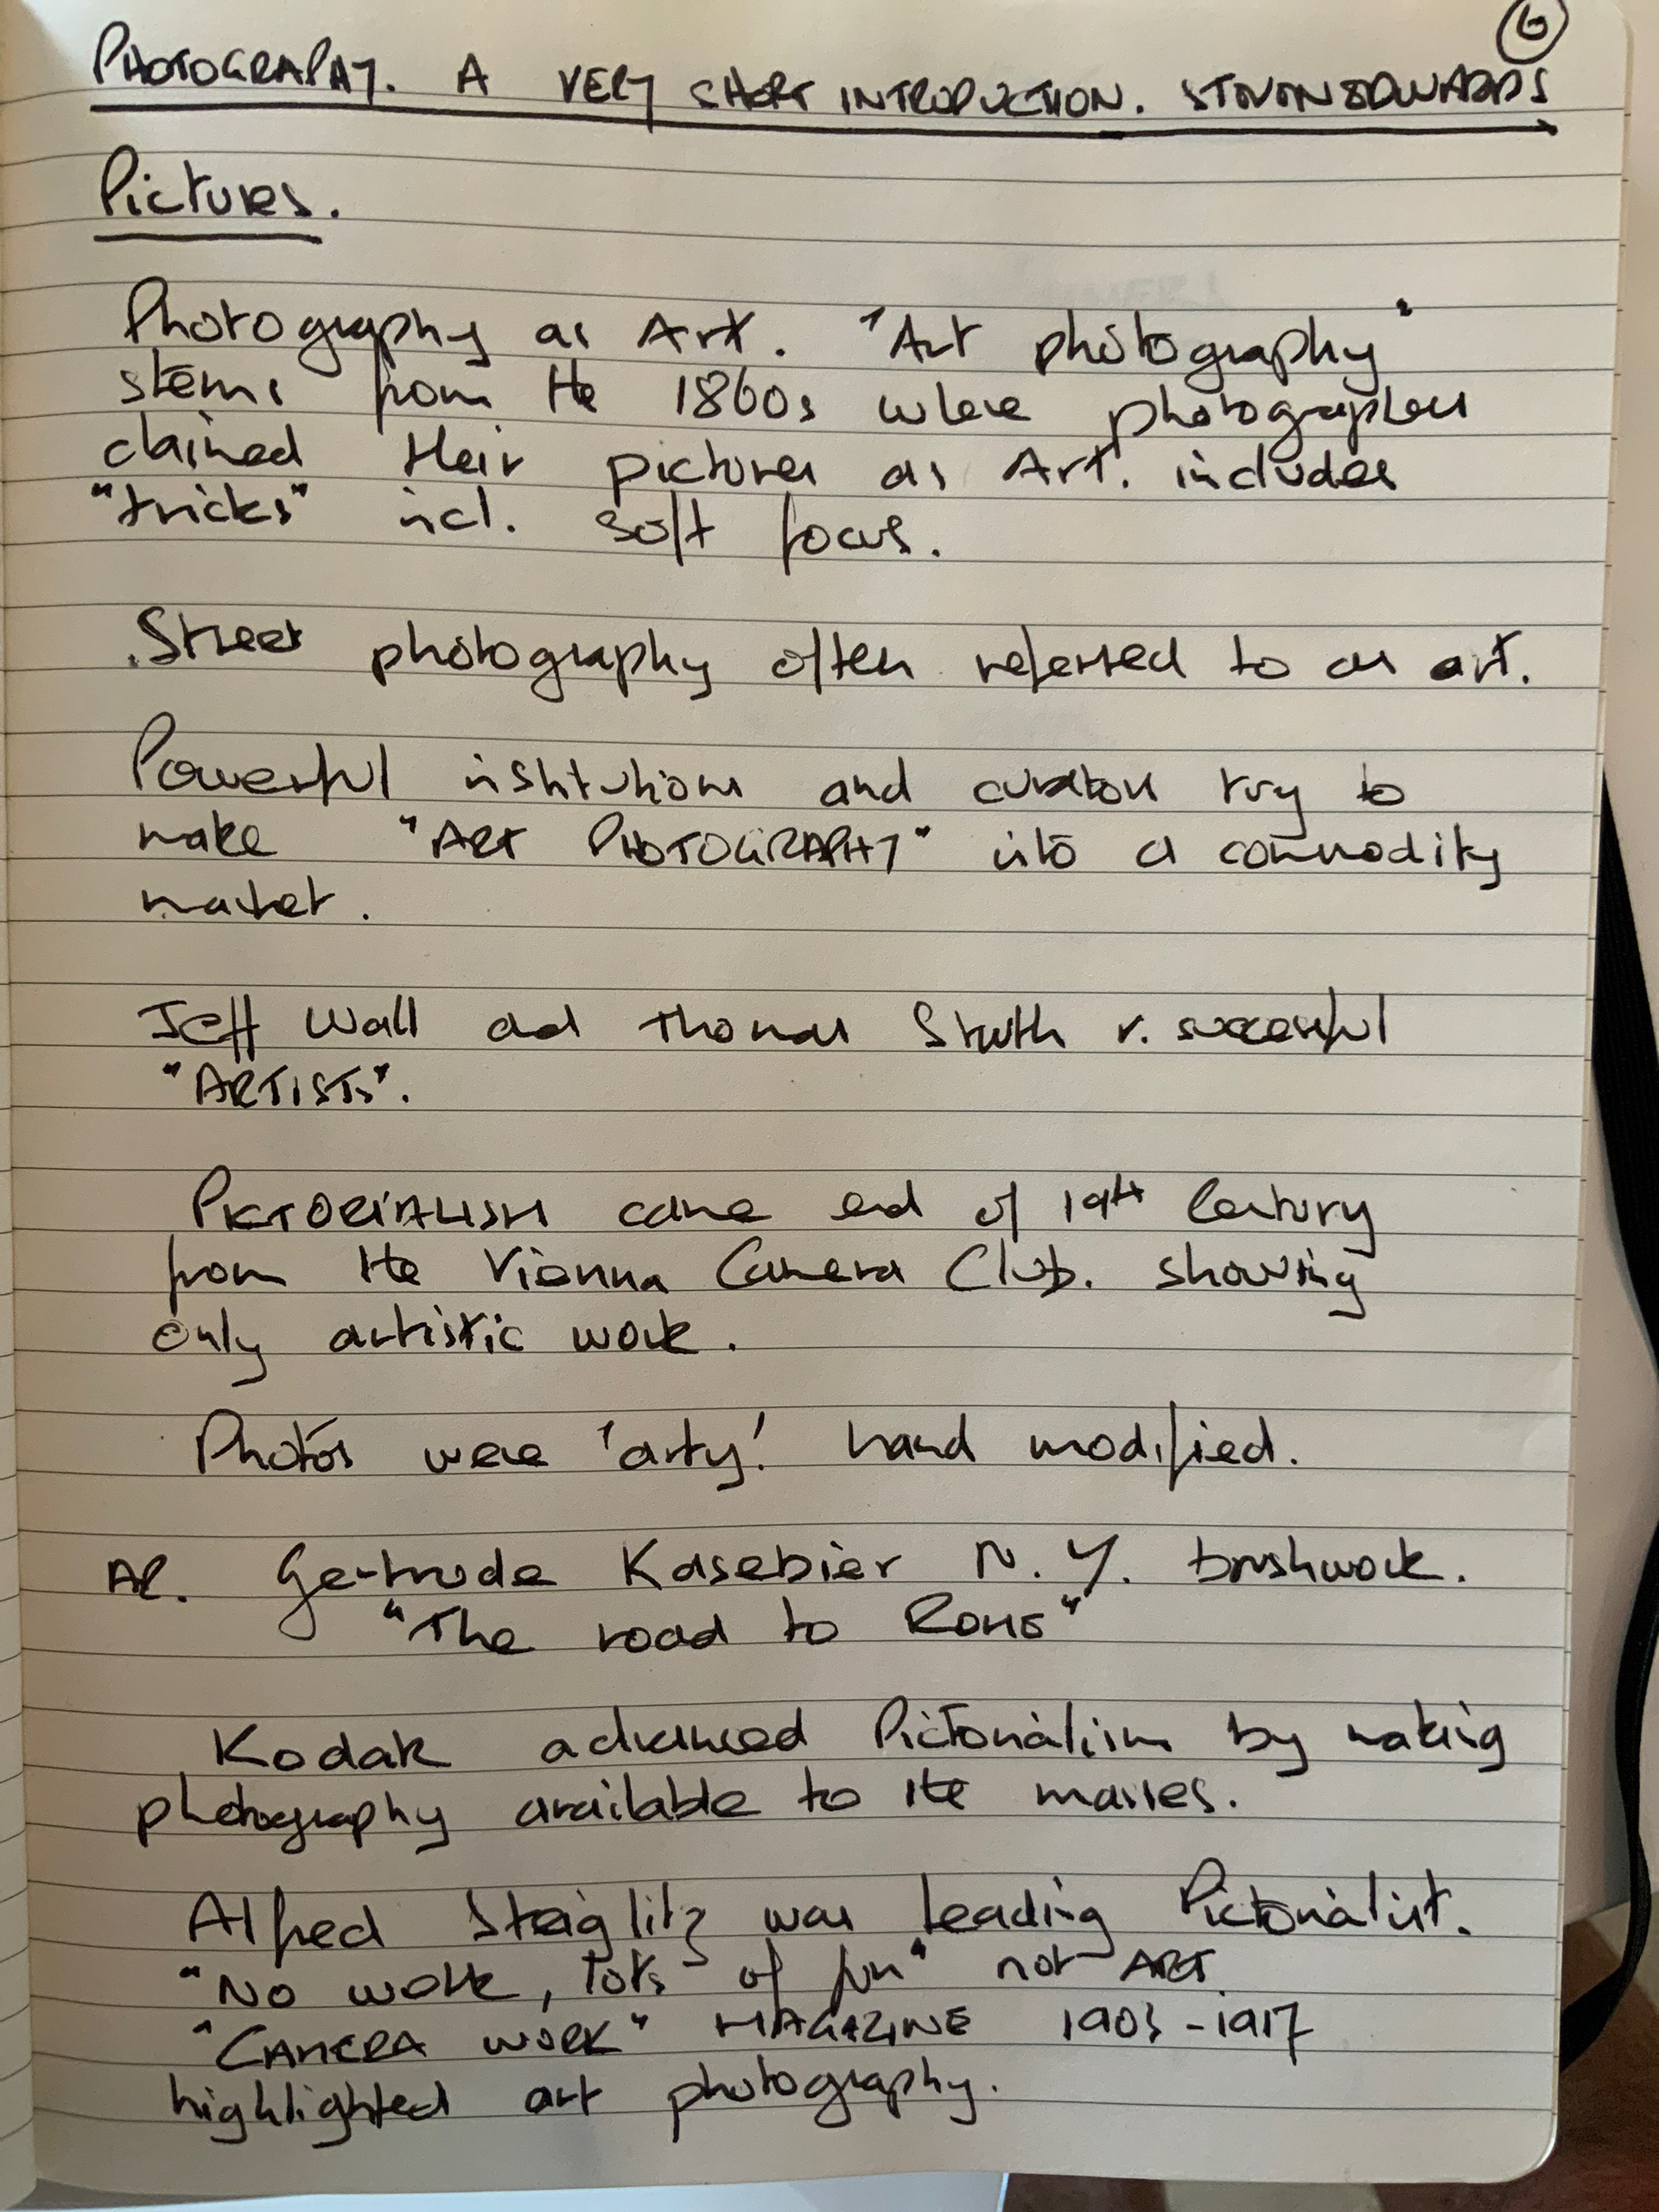 6
PHOTOGRAPHY. A VERY SHORT INTRODUCTION. STEVEN EDWARDS
Pictures.
Photography as Art. "Art photography"
stems from the 1860s where photographers
claimed their pictures as Art. includes
"tricks" incl. soft focus.
Street photography often referred to as art.
Powerful institutions and curators try to
make "ART PHOTOGRAPHY" into a commodity
market.
Jeff Wall and Thomas Struth v. successful
"ARTISTS".
PICTORIALISM came end of 19th Century
from the Vienna Camera Club. showing
only artistic work.
Photos were 'arty'. hand modified.
Gertrude Kasebier N.Y. brushwork.
"The road to Rome"
Kodak advanced Pictorialism by making
photography available to the masses.
Alfred Steiglitz was leading Pictorialist.
"No work, lots of fun" not ART
"CAMERA WORK" MAGAZINE 1903-1917
highlighted art photography.